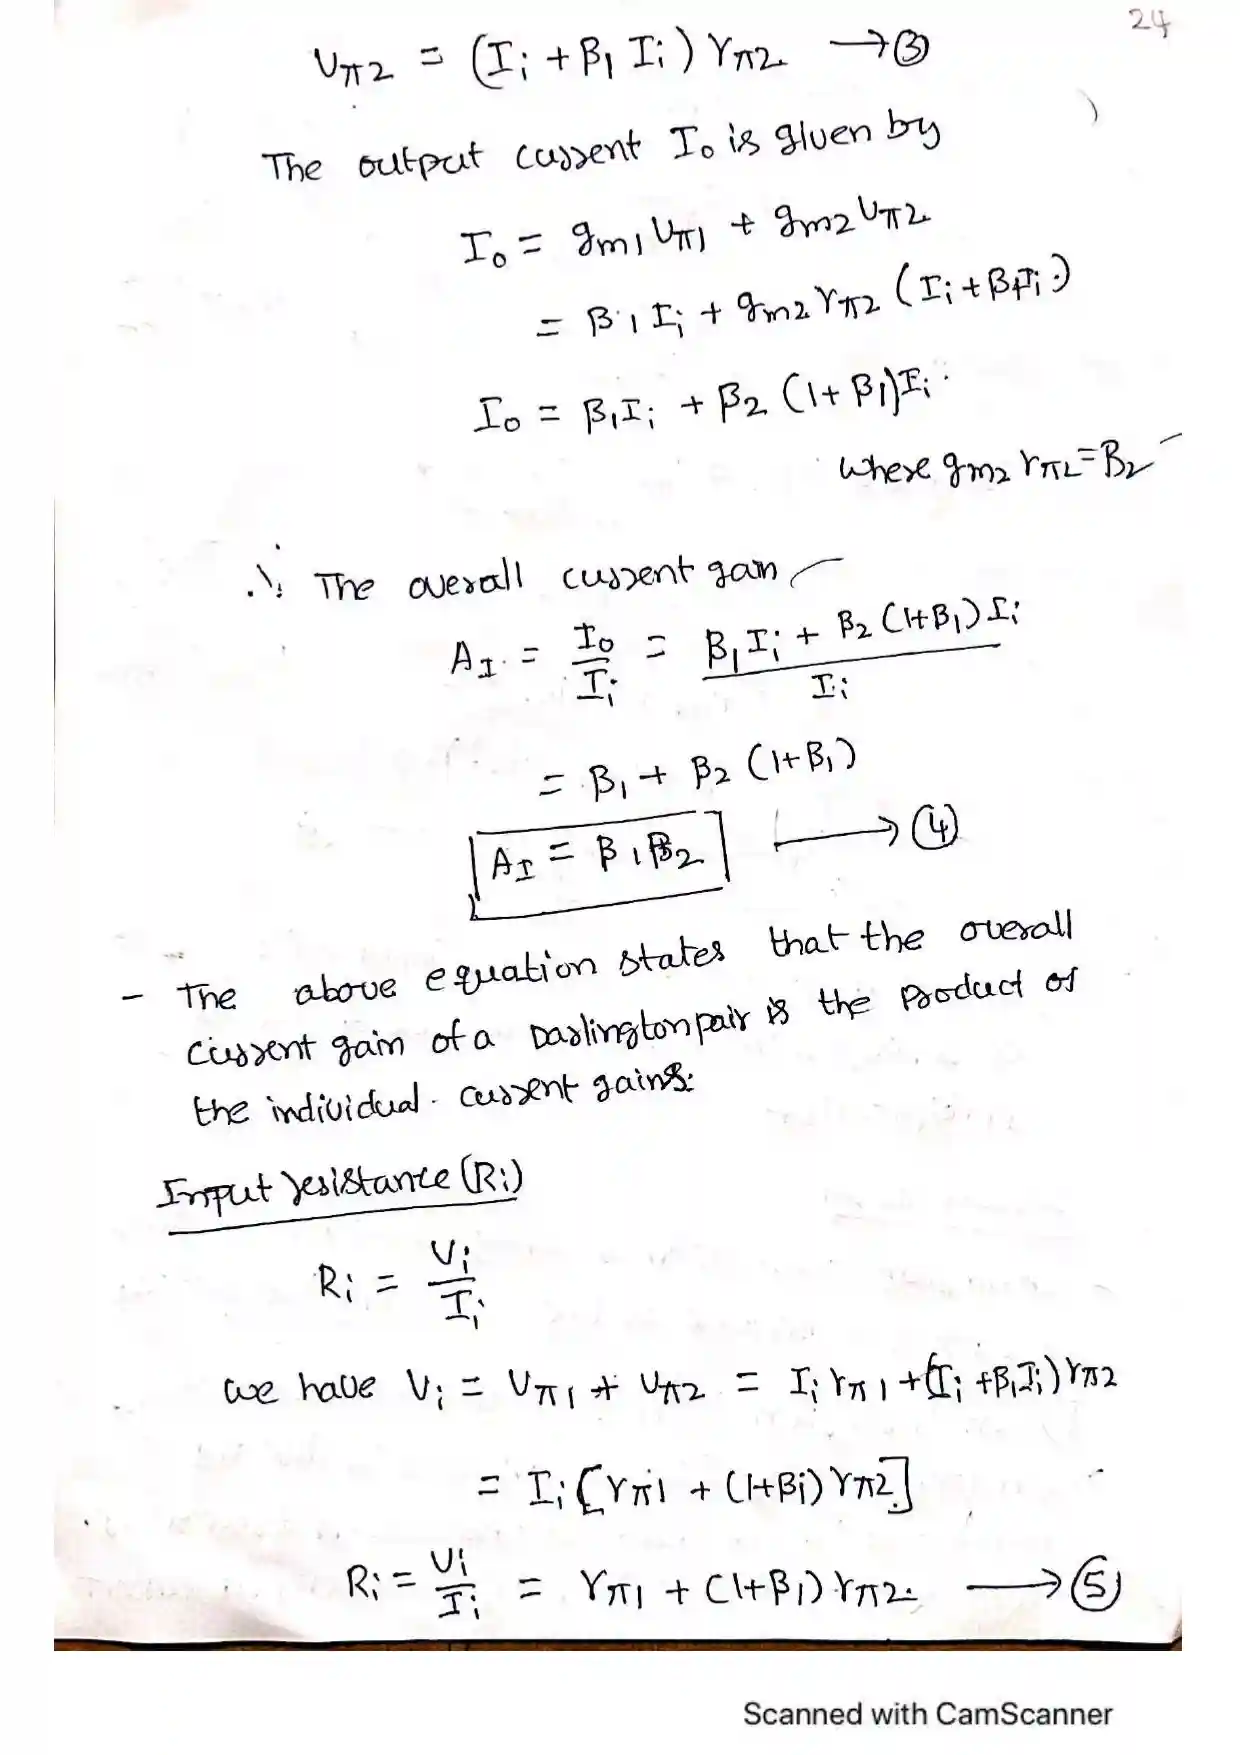 24
Vπ2 = (Ii + β1 Ii) rπ2 → ③
The output current Io is given by
Io = gm1 Vπ1 + gm2 Vπ2
= β1 Ii + gm2 rπ2 (Ii + β1Ii)
Io = β1Ii + β2 (1+β1)Ii
where gm2 rπ2 = β2
∴ The overall current gain
AI = Io/Ii = β1 Ii + β2 (1+β1) Ii / Ii
= β1 + β2 (1+β1)
AI = β1β2 → ④
- The above equation states that the overall
current gain of a Darlington pair is the product of
the individual current gains.
Input resistance (Ri)
Ri = Vi/Ii
we have Vi = Vπ1 + Vπ2 = Ii rπ1 + (Ii + β1Ii) rπ2
= Ii [rπ1 + (1+βi) rπ2]
Ri = Vi/Ii = rπ1 + (1+β1) rπ2 → ⑤
Scanned with CamScanner